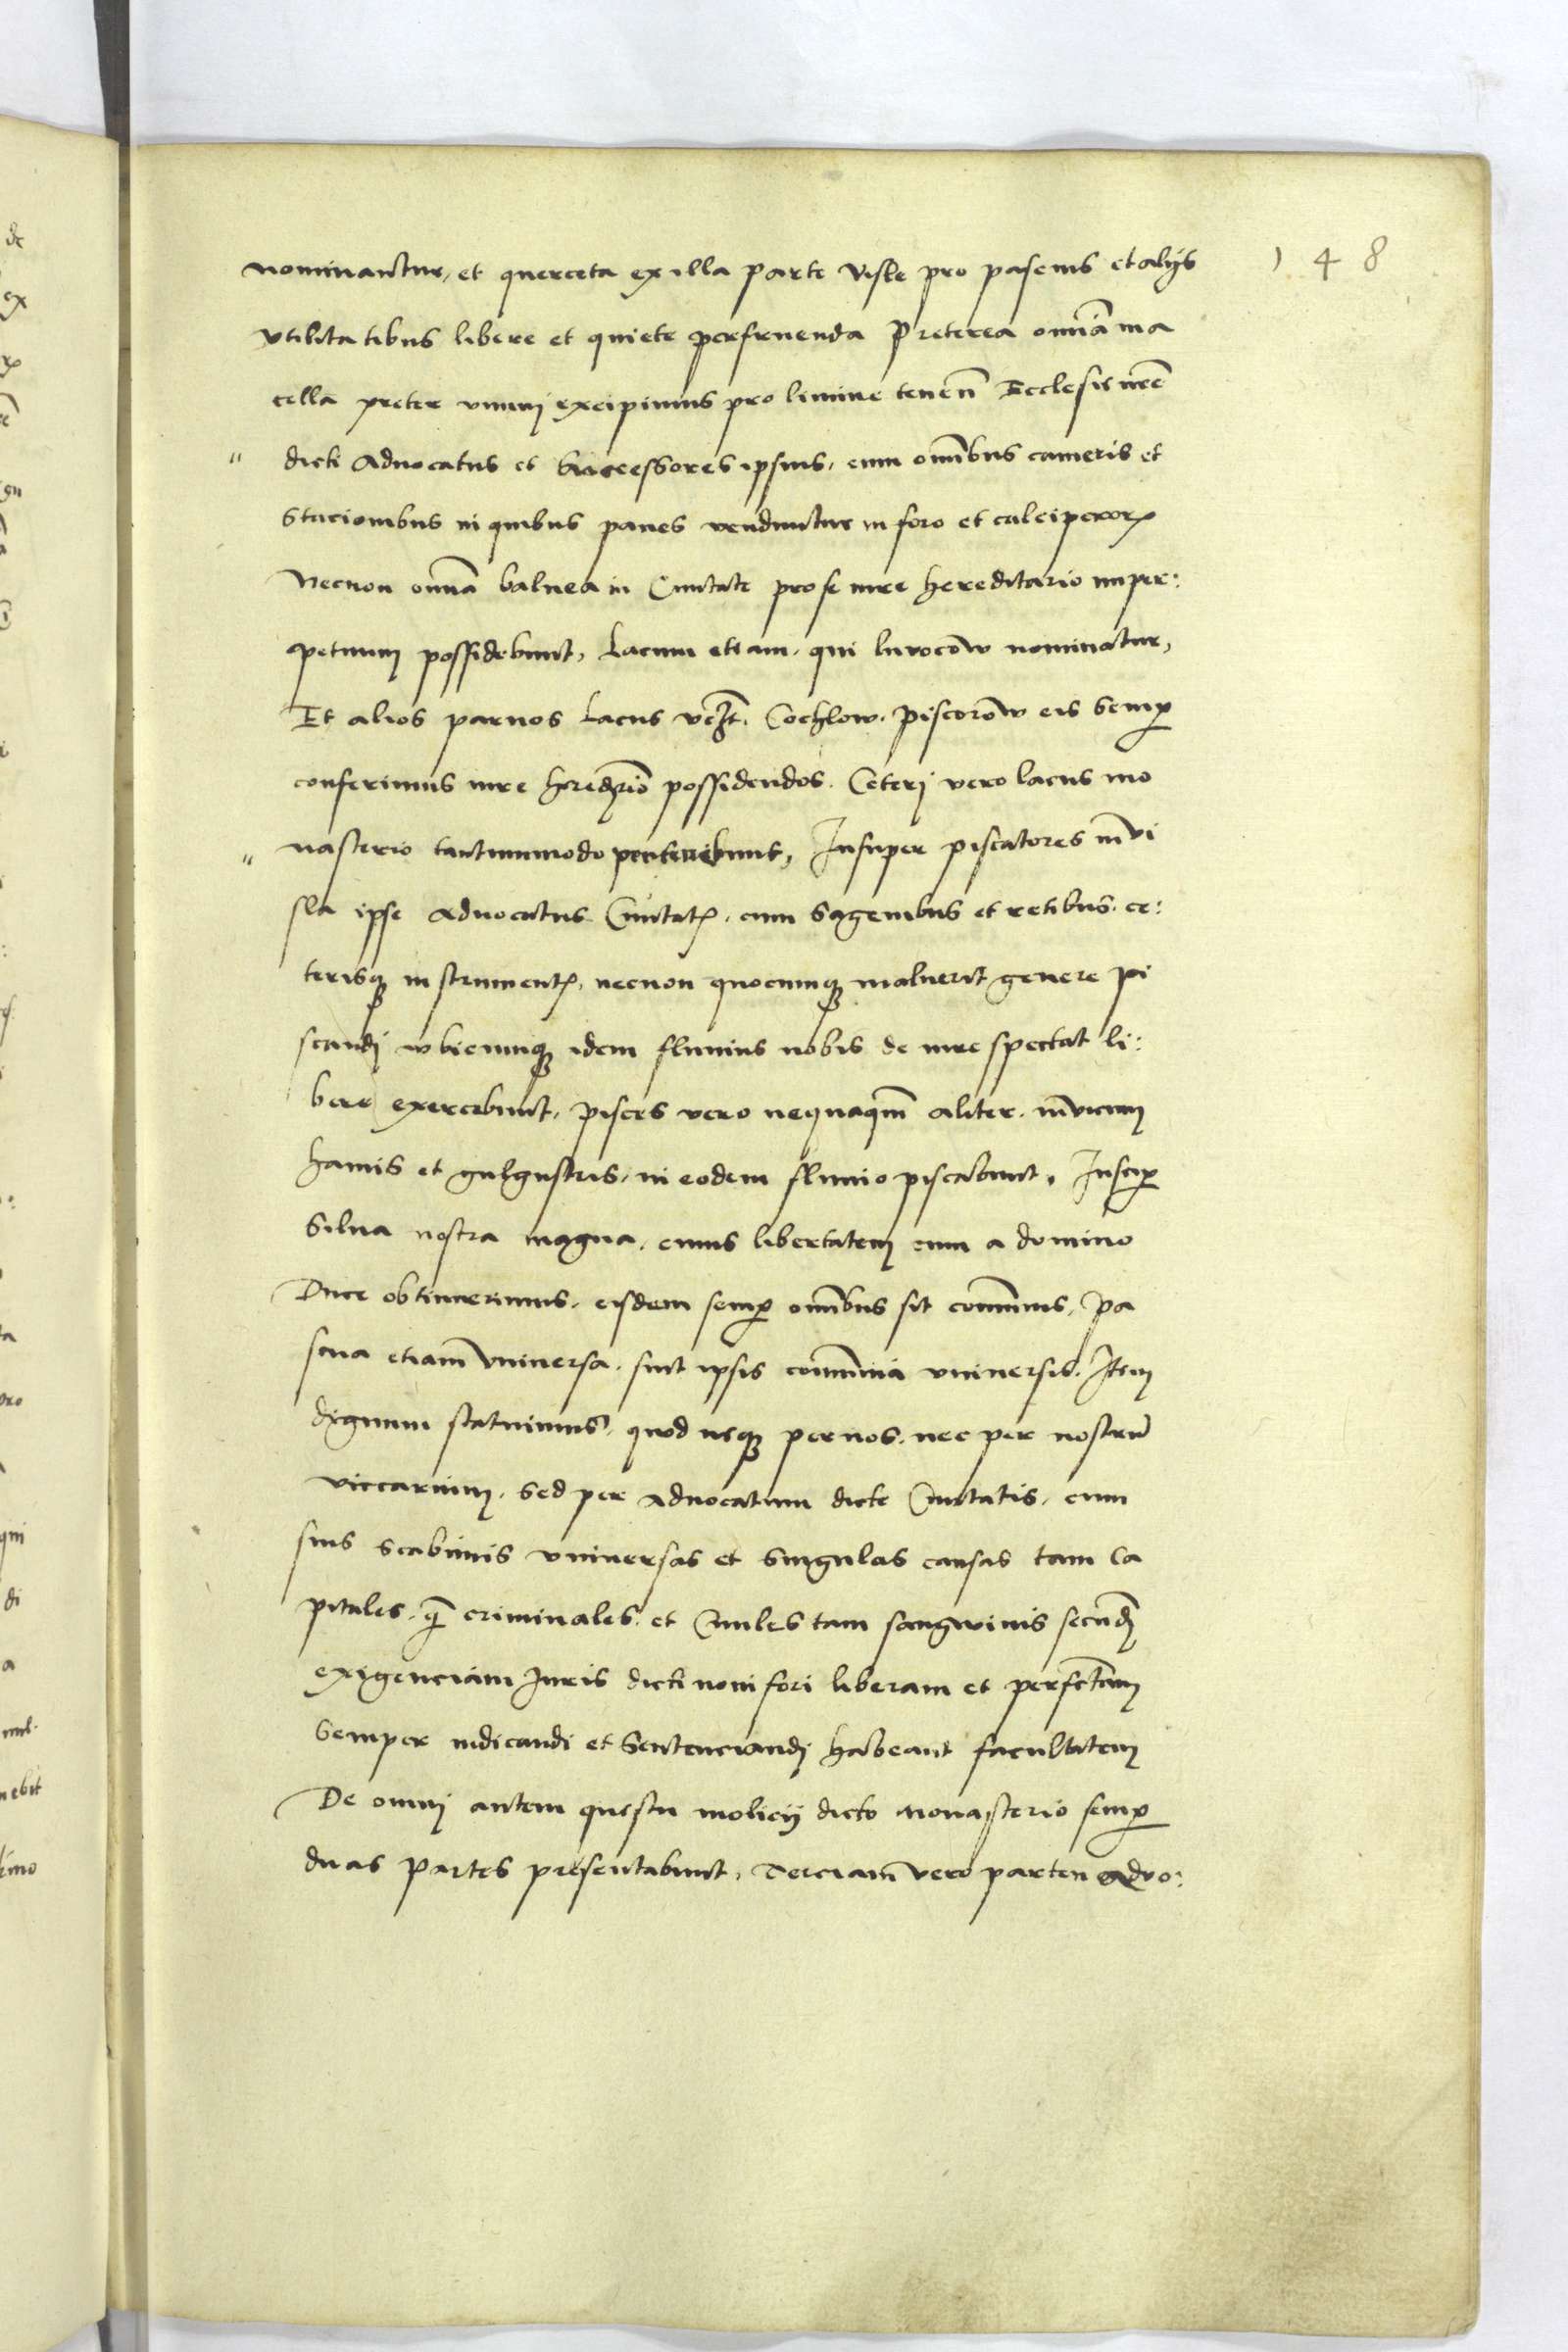 148
nominantur, et querceta ex illa parte Visle pro pascuis et alijs
vtilitatibus libere et quiete perfruenda Preterea omnia ma
cella preter vnum excipimus pro limine tenen̄ Ecclesie nr̄e
dicti Aduocatus et Successores ipsius, cum omībus cameris et
stacionibus in quibus panes venduntur in foro et calciperorꝝ
Necnon omīa balnea in Ciuitate pro se iure hereditario inper:
petuum possidebunt, Lacum etiam, qui luvocow nominatur,
Et alios paruos Lacus vꝫt. Cochlow. Piscorow eis semꝑ
conferimus iure heredrio possidendos. Ceterj vero lacus mo
nasterio tantummodo pertinebunt, Insuper piscatores in vi
sla ipse Aduocatus Ciuitatꝭ, cum sagenibus et retibus. ce:
terisqꝫ instrumentꝭ, necnon quocumqꝫ maluerit genere pi
scandj vbicumqꝫ idem fluuius nobis de iure spectat li:
bere exercebunt, pisces vero nequaqm̄ aliter. in vicum
hamis et gulgustris, in eodem fluuio piscabunt, Insuꝑ
Silua nostra magna, cuius libertatem cum a domino
Duce obtinuerimus, eisdem semꝑ omībus sit com̄unis, pa
scua etiam vniuersa, sint ipsis com̄unia vniuersis. Item
dignum statuimus, quod neqꝫ per nos, nec per nostrū
viccarium, sed per aduocatum dicte Ciuitatis, cum
suis scabinis vniuersas et singulas causas tam ca
pitales, qͣ criminales, et Ciuiles tam sangwinis secundj
exigenciam Juris dicti noui fori liberam et perfectam
semper iudicandi et sentenciandj habeant facultatem
De omnj autem questu molicij dicto Monasterio semꝑ
duas partes presentabunt, Terciam vero partem aduo: